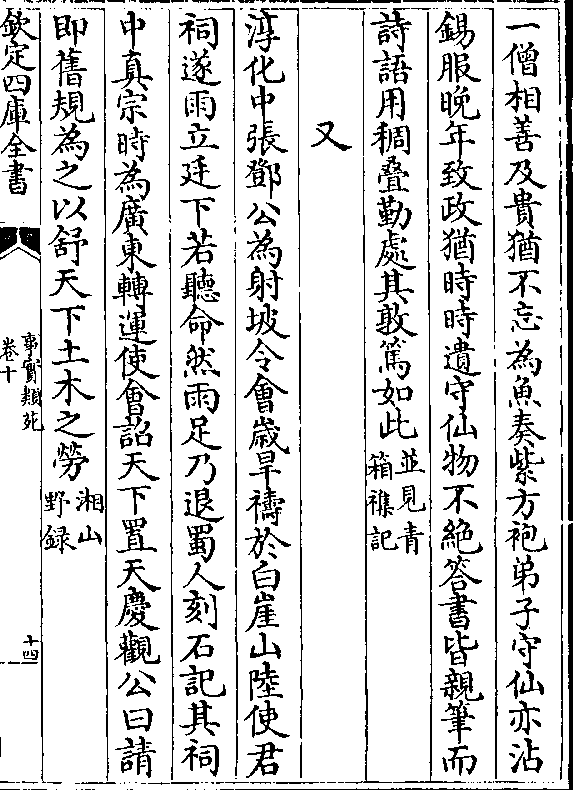 一僧相善及貴猶不忘為魚奏紫方袍弟子守仙亦沾
錫服晚年致政猶時時遺守仙物不絶答書皆親筆而
詩語用稠疊勤處其敦篤如此並見青箱襍記
又
淳化中張鄧公為射坡令會歲旱禱於白崖山陸使君
祠遂雨立廷下若聽命然雨足乃退蜀人刻石記其祠
中真宗時為廣東轉運使會詔天下置天慶觀公曰請
即舊規為之以舒天下土木之勞湘山野録
欽定四庫全書
事實類苑
卷十
十四